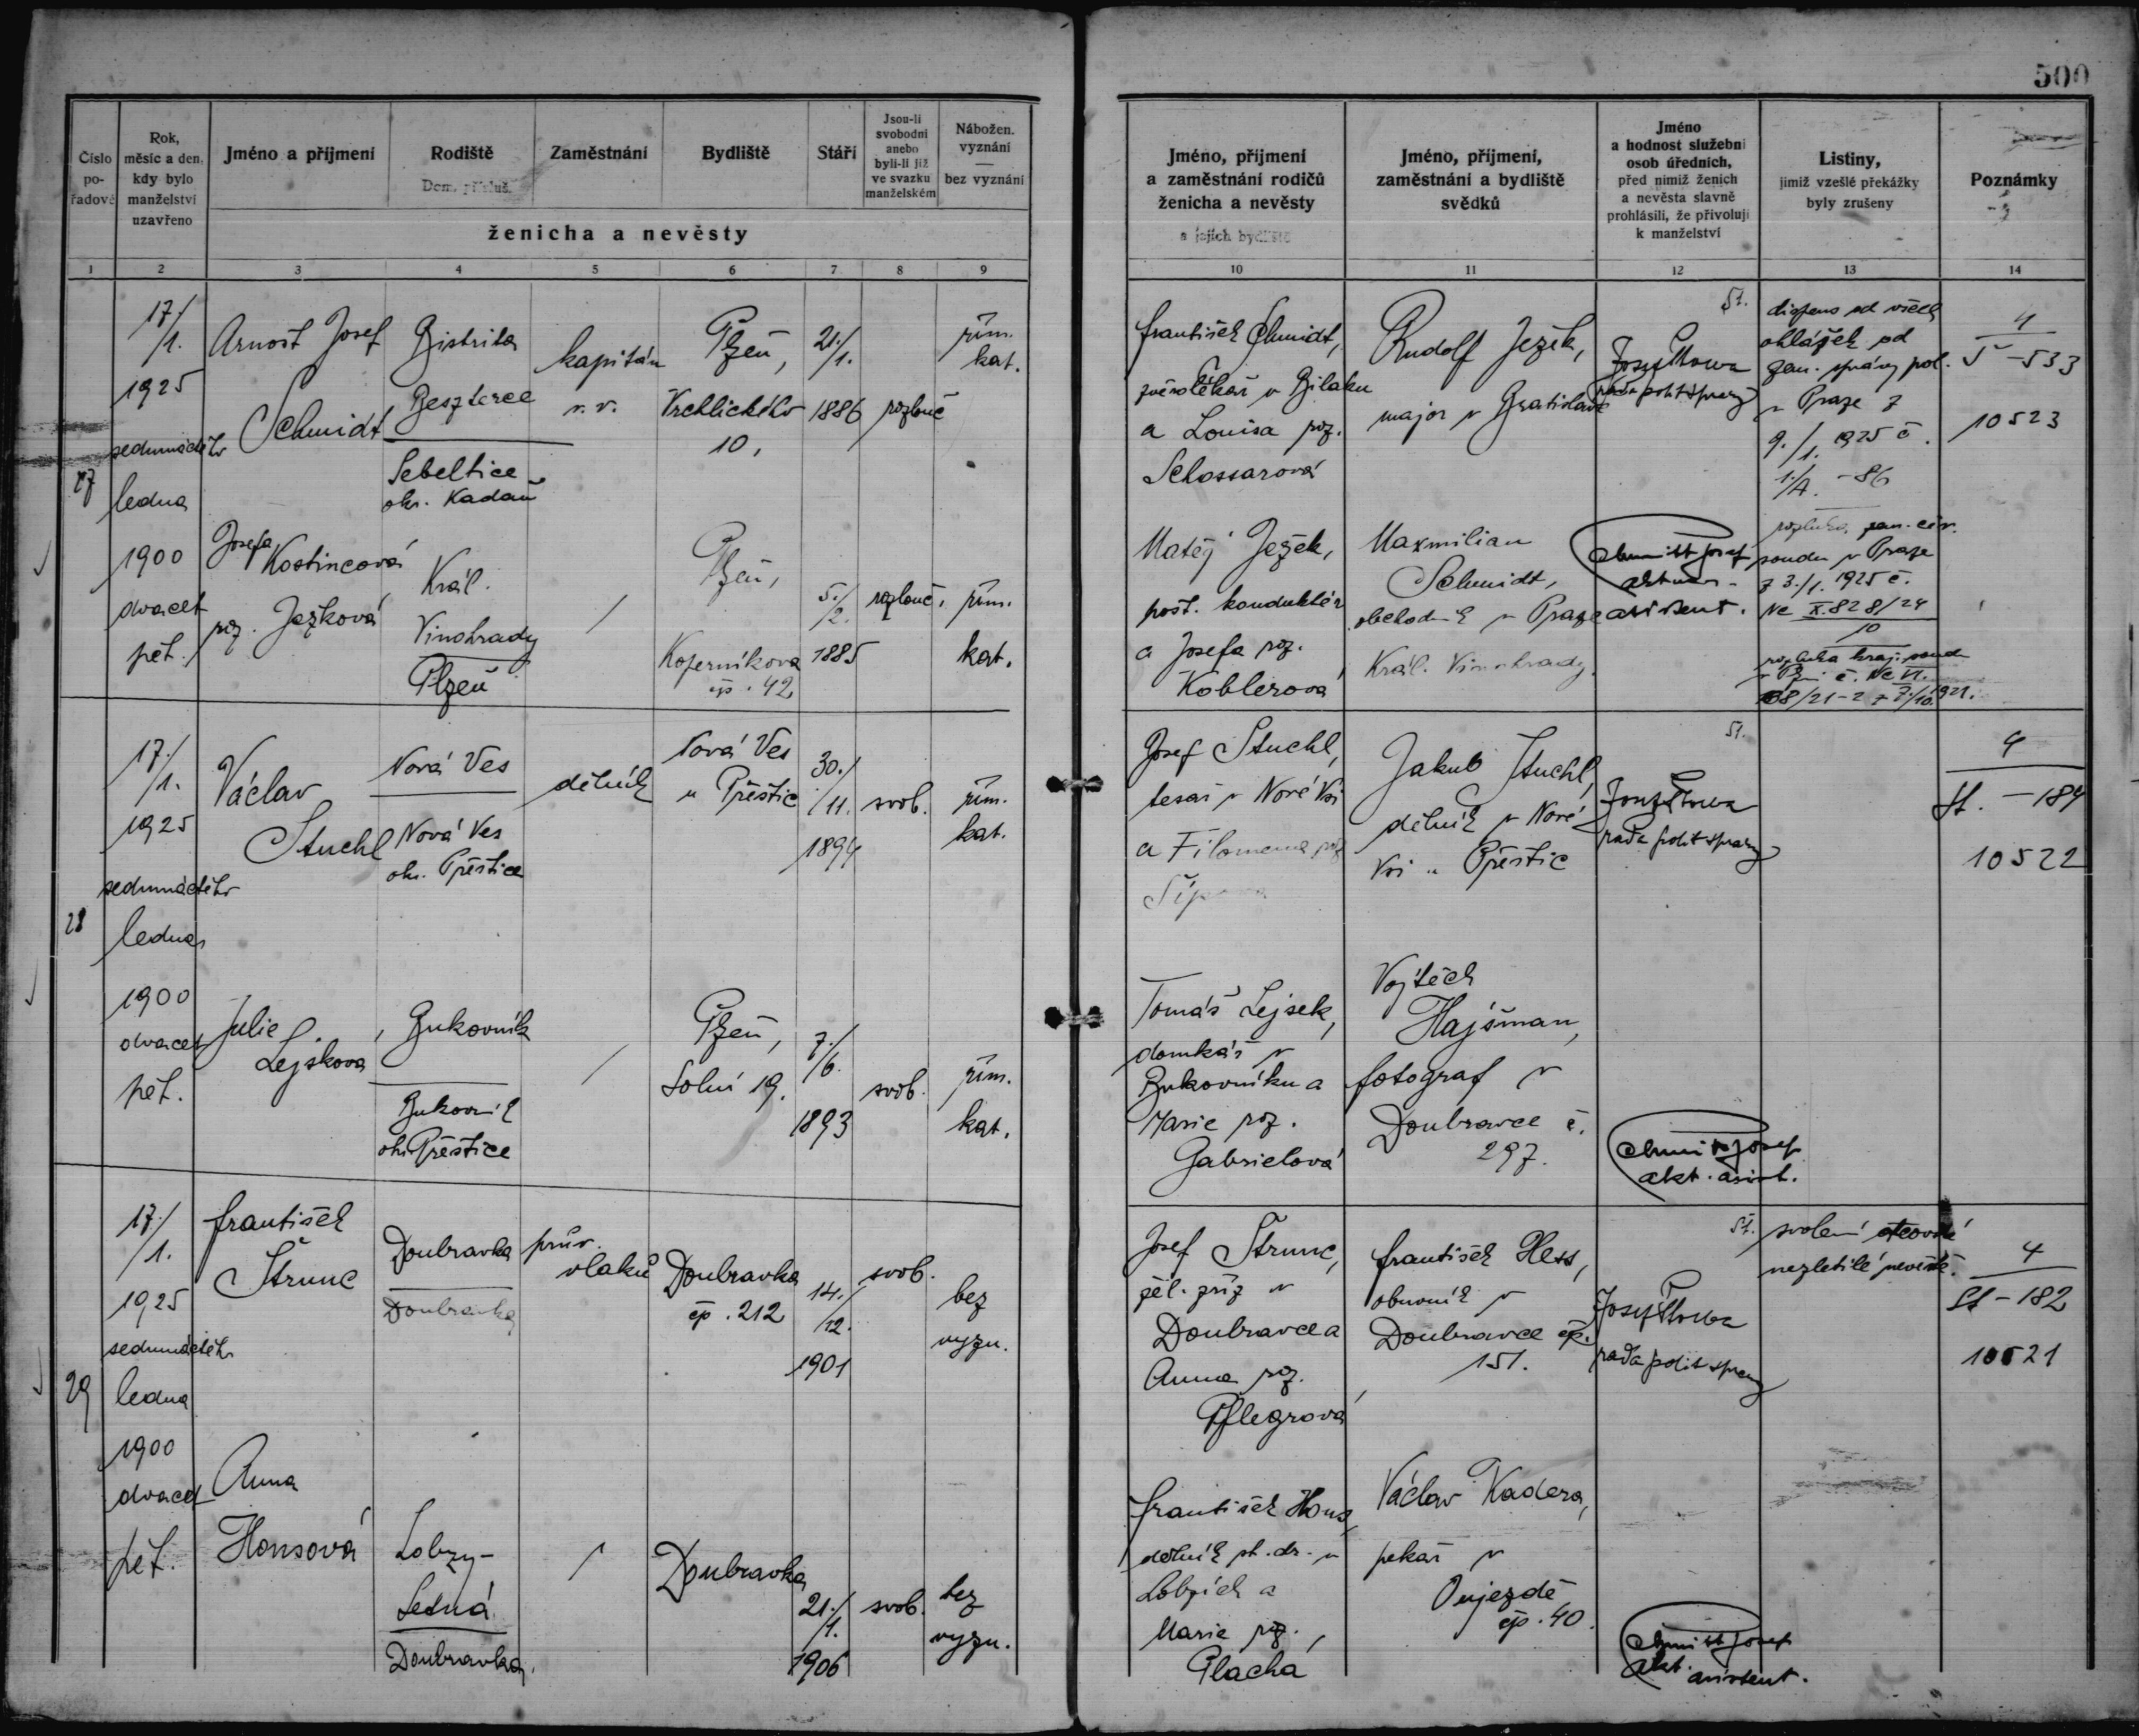 500
Číslo pořadové
Rok, měsíc a den, kdy bylo manželství uzavřeno
Jméno a příjmení
Rodiště
Dom. přísluš.
Zaměstnání
Bydliště
Stáří
Jsou-li svobodni anebo byli-li již ve svazku manželském
Nábožen. vyznání — bez vyznání
ženicha a nevěsty
Jméno, příjmení a zaměstnání rodičů ženicha a nevěsty
a jejich bydliště
Jméno, příjmení, zaměstnání a bydliště svědků
Jméno a hodnost služební osob úředních, před nimiž ženich a nevěsta slavně prohlásili, že přivolují k manželství
Listiny, jimiž vzešlé překážky byly zrušeny
Poznámky
1 2 3 4 5 6 7 8 9 10 11 12 13 14
27
17./1.
1925
sedmnáctého
ledna
1900
dvacet
pět.
Arnošt Josef
Schmidt
Bistrita
Beszterce
Sebeltice
okr. Kadaň
kapitán
v. v.
Plzeň,
Vrchlického
10,
21./1.
1886
rozlouč
řím.
kat.
František Schmidt,
zvěrolékař v Bilaku
a Louisa roz.
Schossarová
Rudolf Ježek,
major v Bratislavě
rada polit správy
dispens od všech
ohlášek od
zem. správy pol.
v Praze z
9./1. 1925 č.
1./A. - 86
4
5 - 533
10523
Josefa
Kostincová
roz. Ježková
Král.
Vinohrady
Plzeň
/
Plzeň,
Koperníkova
čp. 42
5./2.
1885
rozlouč.
řím.
kat.
Matěj Ježek,
pošt. konduktér
a Josefa roz.
Koblerová
Maxmilian
Schmidt,
obchodník v Praze
Král. Vinohrady.
asistent.
rozluka zem. civ.
soudu v Praze
z 3./1. 1925 č.
Nc X. 828/24
10
rozluka kraj. soud
28
17./1.
1925
sedmnáctého
ledna
1900
dvacet
pět.
Václav
Stuchl
Nová Ves
Nová Ves
okr. Přeštice
dělník
Nová Ves
u Přeštic
30./11.
1894
svob.
řím.
kat.
Josef Stuchl,
tesař v Nové Vsi
a Filomena roz
Jakub Stuchl,
dělník v Nové
Vsi u Přeštic
rada polit správy
4
St. - 184
10522
Julie
Lejskova
Bukovník
Bukovník
okr. Přeštice
/
Plzeň,
Solní 19.
7./6.
1893
svob.
řím.
kat.
Tomáš Lejsek,
domkář v
Bukovníku a
Marie roz.
Gabrielová
Vojtěch
Hajšman,
fotograf v
Doubravce č.
297.
akt. asist.
29
17./1.
1925
sedmnáctého
ledna
1900
dvacet
pět.
František
Štrunc
Doubravka
Doubravka
prův.
vlaků
Doubravka
čp. 212
14./12.
1901
svob.
bez
vyzn.
Josef Štrunc,
žel. zříz v
Doubravce a
Anna roz.
Pflegrová
František Hess,
obuvník v
Doubravce čp.
151.
rada polit správy
svolení otcovské
nezletilé nevěstě.
4
St - 182
10521
Anna
Honsová
Lobzy-
Letná
Doubravka.
/
Doubravka
21./1.
1906
svob.
bez
vyzn.
František Hons,
dělník st. dr. v
Lobzích a
Marie roz.
Plachá
Václav Kadera,
pekař v
Oujezdě
čp. 40.
akt. asistent.